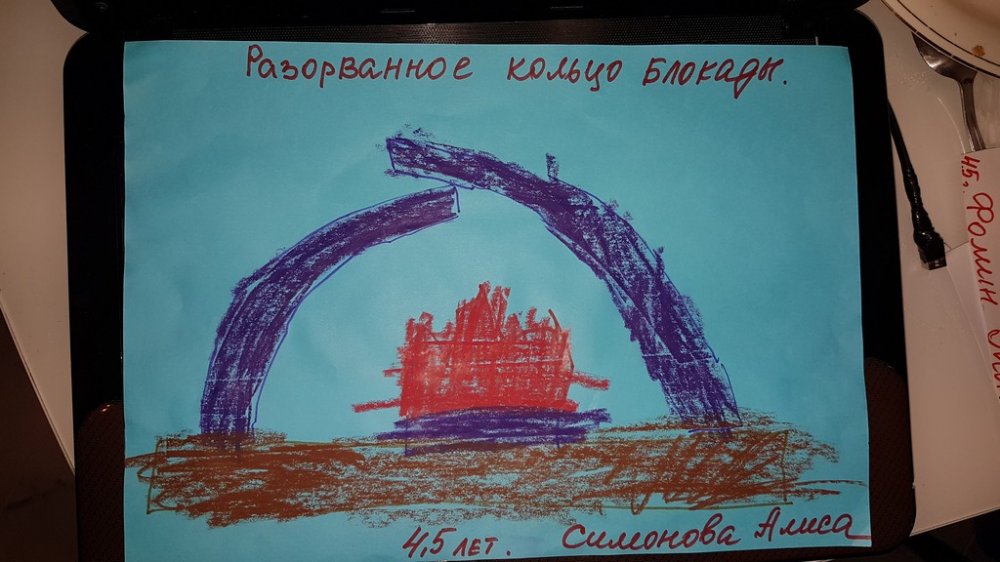 Разорванное кольцо Блокады.
4,5 лет. Симонова Алиса
4,5, Фомин